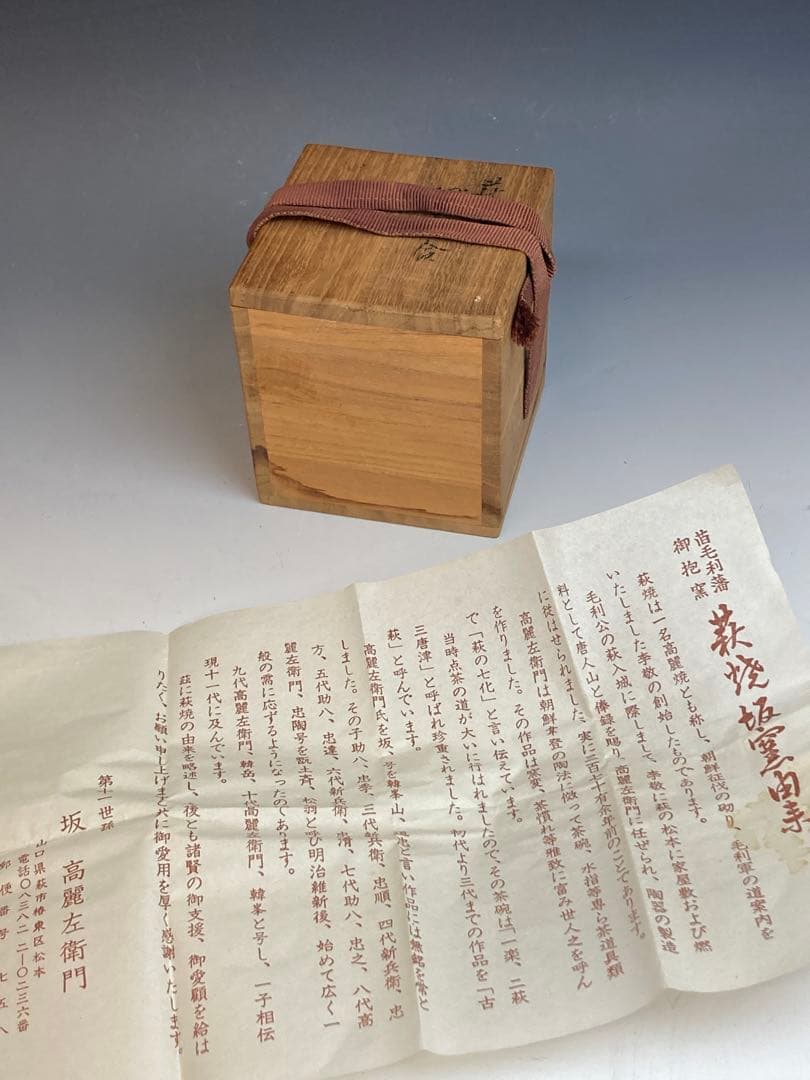 旧毛利藩
御抱窯
萩焼坂窯由来
萩焼は一名高麗焼とも称し、朝鮮征伐の砌り、毛利軍の道案内を
いたしました李敬の創始したものであります。
毛利公の萩入城に際しまして、李敬に萩の松本に家屋敷および燃
料として唐人山と俸録を賜り、高麗左衛門に任ぜられ、陶器の製造
に従はせられました。実に三百七十有余年前のことであります。
高麗左衛門は朝鮮本登の陶法に倣って茶碗、水指等専ら茶道具類
を作りました。その作品は窯変、茶慣れ等雅致に富み世人之を呼ん
で「萩の七化」と言い伝えています。
当時点茶の道が大いに行はれましたので、その茶碗は「一楽、二萩
三唐津」と呼ばれ珍重されました。初代より三代までの作品を「古
萩」と呼んでいます。
高麗左衛門氏を坂、号を韓峯山、と言い作品には無銘を常と
しました。その子助八、忠季、三代新兵衛、忠順、四代新兵衛、忠
方、五代助八、忠達、六代新兵衛、清、七代助八、忠之、八代高
麗左衛門、忠陶号を翫土斉、松翁と呼び明治維新後、始めて広く一
般の需に応ずるようになったのであります。
九代高麗左衛門、韓岳、十代高麗左衛門、韓峯と号し、一子相伝
現十一代に及んでいます。
茲に萩焼の由来を略述し、後とも諸賢の御支援、御愛顧を給は
りたく、お願い申し上げますと共に御愛用を厚く感謝いたします。
第十一世孫
坂高麗左衛門
山口県萩市椿東区松本
電話〇八三八二 二‐〇二三六番
郵便番号 七五八